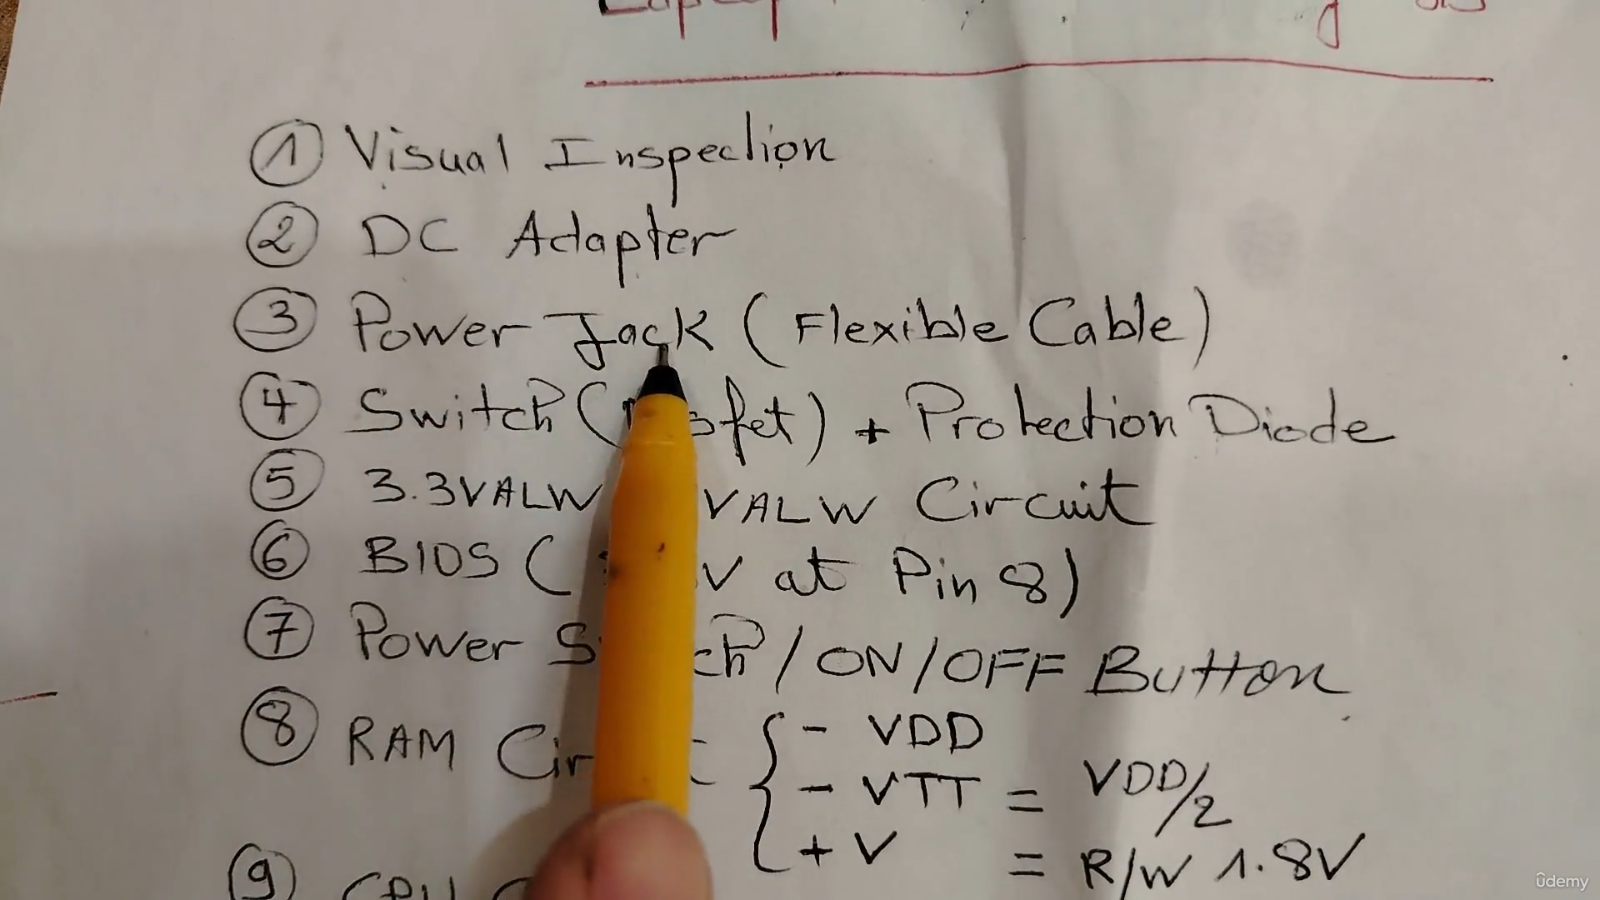 Laptop
① Visual Inspection
② DC Adapter
③ Power Jack (Flexible Cable)
④ Switch (Mosfet) + Protection Diode
⑤ 3.3VALW VALW Circuit
⑥ BIOS ( V at Pin 8)
⑦ Power Switch / ON/OFF Button
⑧ RAM Circuit { - VDD
- VTT = VDD/2
+ V = R/W 1.8V
⑨ CPU
ûdemy